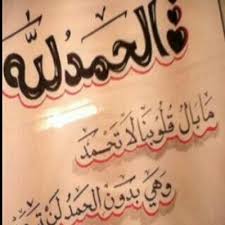 الحمد لله
ما بال قلوبنا لا تحمد
وهي بدون الحمد لن